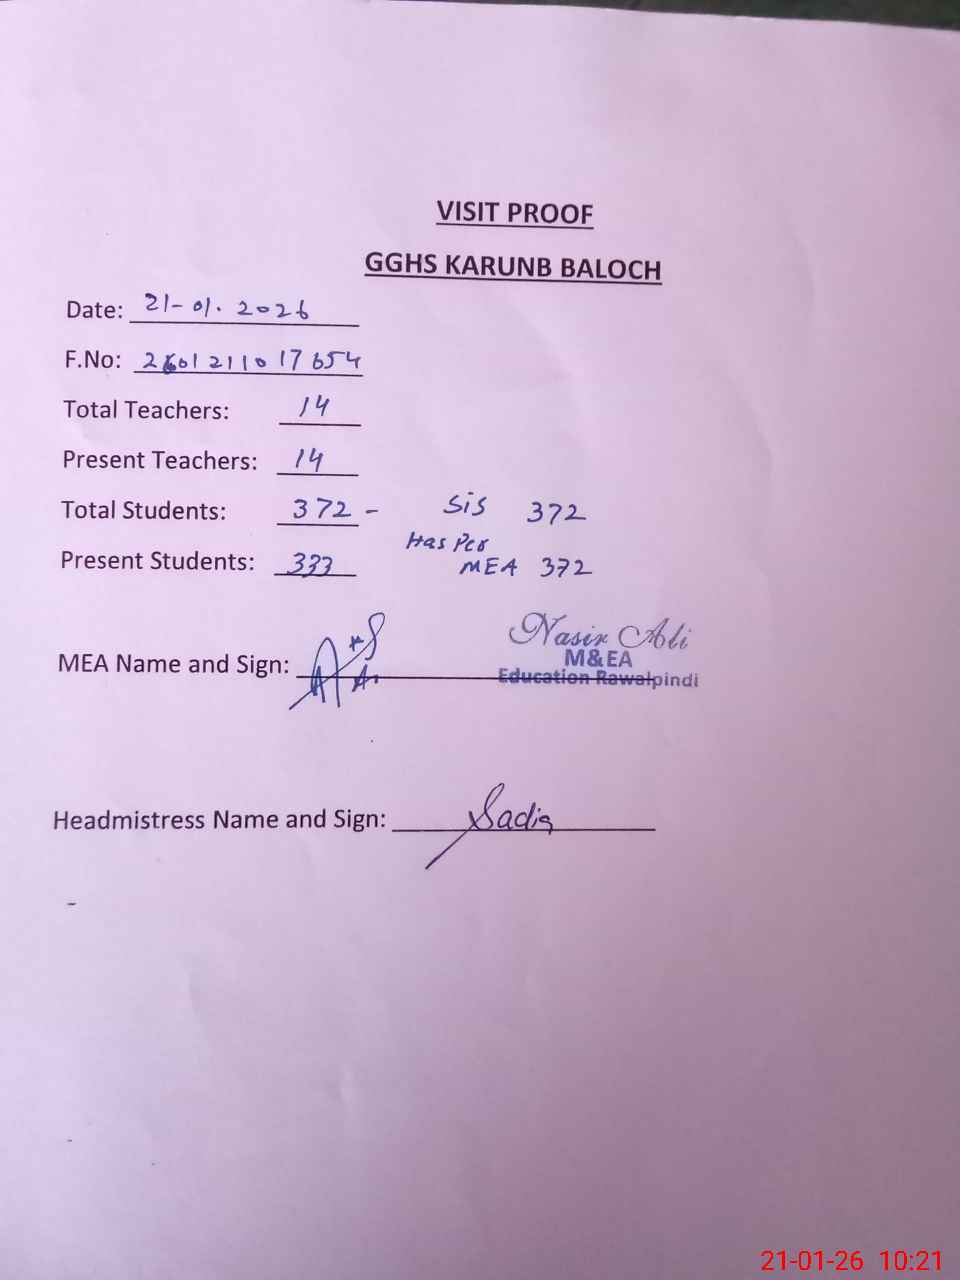 VISIT PROOF
GGHS KARUNB BALOCH
Date: 21-01.2026
F.No: 2601211017654
Total Teachers: 14
Present Teachers: 14
Total Students: 372 - SiS 372
Present Students: 333 Has Per
MEA 372
MEA Name and Sign: Nasir Ali
M&EA
Education Rawalpindi
Headmistress Name and Sign: Sadia
21-01-26 10:21